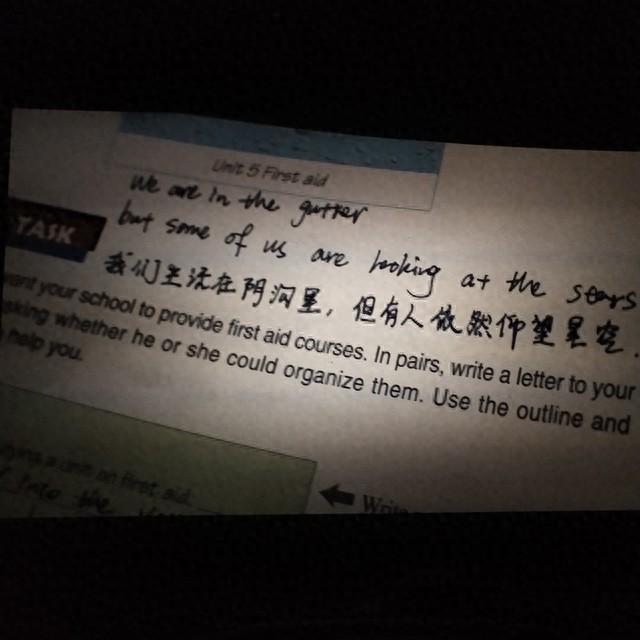 Unit 5 First aid
We are in the gutter
TASK
but some of us are looking at the stars
我们生活在阴沟里，但有人依然仰望星空.
want your school to provide first aid courses. In pairs, write a letter to your
asking whether he or she could organize them. Use the outline and
help you.
a unit on first aid
into the
Write